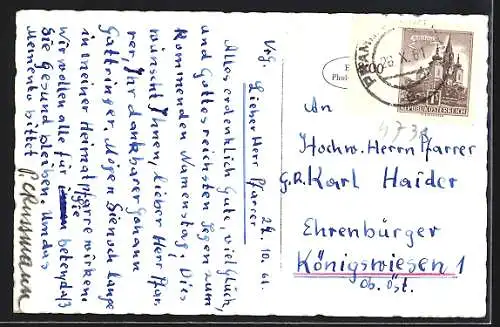 Vrg. 24. 10. 61.
Lieber Herr Pfarrer
Alles erdenklich Gute, viel Glück,
und Gottes reichsten Segen zum
Kommenden Namenstag! Dies
wünscht Ihnen, lieber Herr Pfar-
rer, Ihr dankbarer Johann
Gattringer. Mögen Sie noch lange
in meiner Heimatpfarre wirken.
Wir wollen alle für Sie beten, daß
Sie Gesund bleiben. Um das
Memento bittet
REPUBLIK ÖSTERREICH
26. X. 61
An
Hochw. Herrn Pfarrer
G.R. Karl Haider
Ehrenbürger
Königswiesen 1
Ob. Öst.